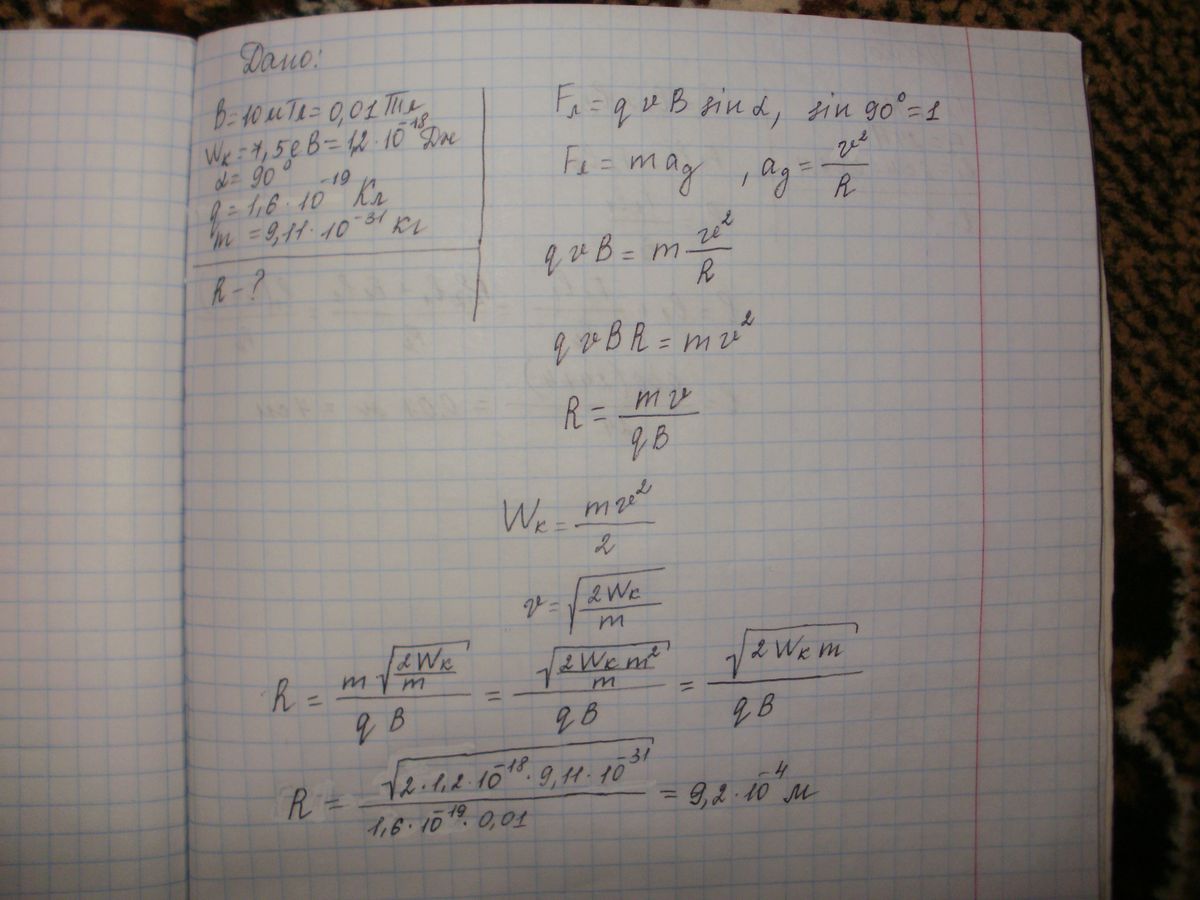 Дано:
B = 10 мТл = 0,01 Тл
Wк = 7,5 еВ = 1,2 · 10⁻¹⁸ Дж
α = 90°
q = 1,6 · 10⁻¹⁹ Кл
m = 9,11 · 10⁻³¹ кг
R - ?
Fл = q v B sin α, sin 90° = 1
Fл = m aд , aд = v²/R
q v B = m v²/R
q v B R = m v²
R = mv/qB
Wк = mv²/2
v = √(2Wк/m)
R = m√(2Wк/m)/qB = √(2Wк m²/m)/qB = √(2Wк m)/qB
R = √(2 · 1,2 · 10⁻¹⁸ · 9,11 · 10⁻³¹)/1,6 · 10⁻¹⁹ · 0,01 = 9,2 · 10⁻⁴ м